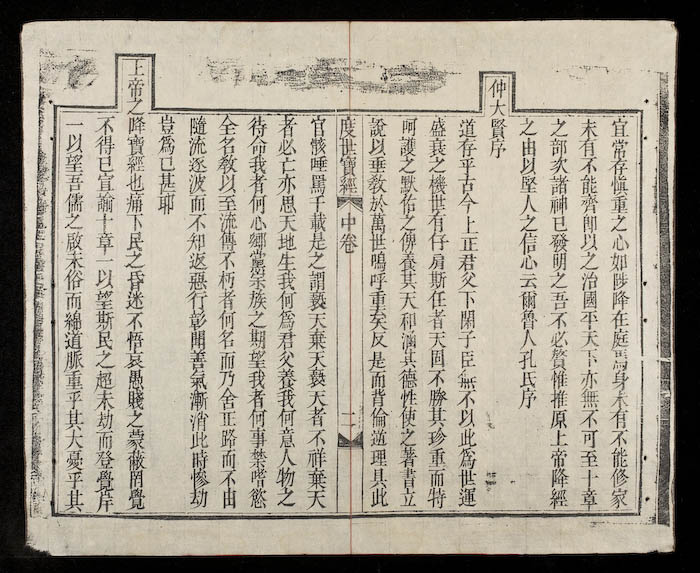 宜常存愼重之心如陟降在庭焉身未有不能修家
未有不能齊卽以之治國平天下亦無不可至十章
之部次諸神已發明之吾不必贅惟推原上帝降經
之由以堅人之信心云爾魯人孔氏序
仲大賢序
道存乎古今上正君父下閑子臣無不以此爲世運
盛衰之機世有仔肩斯任者天固不勝其珍重而特
呵護之默佑之俾養其天和涵其德性使之著書立
說以垂敎於萬世嗚呼重矣反是而背倫逆理具此
度世寶經 中卷 二
官骸唾罵千載是之謂褻天棄天褻天者不祥棄天
者必亡亦思天地生我何爲君父養我何意人物之
待命我者何心鄉黨宗族之期望我者何事禁嗜慾
全名敎以至流傳不朽者何名而乃舍正路而不由
隨流逐波而不知返惡行彰聞善氣漸消此時慘劫
豈爲已甚耶
上帝之降寶經也痛下民之昏迷不悟哀愚賤之蒙蔽罔覺
不得已宜諭十章一以望斯民之超未劫而登覺岸
一以望吾儒之啟未俗而綿道脈重乎其大憂乎其